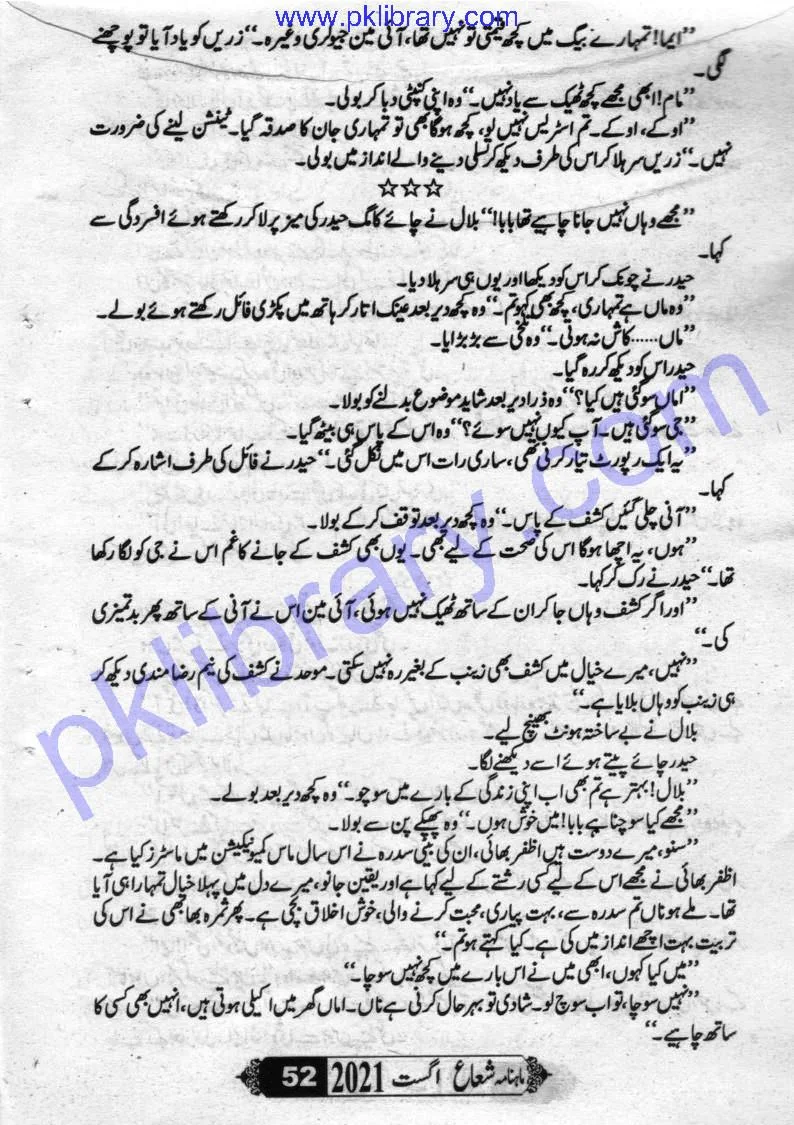 www.pklibrary.com
”ایما! تمہارے بیگ میں کچھ قیمتی تو نہیں تھا، آئی مین جیولری وغیرہ۔“ زریں کو یاد آیا تو پوچھنے
لگی۔
”مام! ابھی مجھے کچھ ٹھیک سے یاد نہیں۔“ وہ اپنی کنپٹی دبا کر بولی۔
”اوکے، اوکے۔ تم اسٹریس نہیں لو، کچھ ہوگا بھی تو تمہاری جان کا صدقہ گیا۔ ٹینشن لینے کی ضرورت
نہیں۔“ زریں سر ہلا کر اس کی طرف دیکھ کر تسلی دینے والے انداز میں بولی۔
☆☆☆
”مجھے وہاں نہیں جانا چاہیے تھا بابا!“ بلال نے چائے کا مگ حیدر کی میز پر لا کر رکھتے ہوئے افسردگی سے
کہا۔
حیدر نے چونک کر اس کو دیکھا اور یوں ہی سر ہلا دیا۔
”وہ ماں ہے تمہاری، کچھ بھی کہو تم۔“ وہ کچھ دیر بعد عینک اتار کر ہاتھ میں پکڑی فائل رکھتے ہوئے بولے۔
”ماں...... کاش نہ ہوتی۔“ وہ تلخی سے بڑبڑایا۔
حیدر اس کو دیکھ کر رہ گیا۔
”اماں سوگئی ہیں کیا؟“ وہ ذرا دیر بعد شاید موضوع بدلنے کو بولا۔
”جی سوگئی ہیں۔ آپ کیوں نہیں سوئے؟“ وہ اس کے پاس ہی بیٹھ گیا۔
”یہ ایک رپورٹ تیار کرنی تھی، ساری رات اس میں نکل گئی۔“ حیدر نے فائل کی طرف اشارہ کرکے
کہا۔
”آنی چلی گئیں کشف کے پاس۔“ وہ کچھ دیر بعد توقف کرکے بولا۔
”ہوں، یہ اچھا ہوگا اس کی صحت کے لیے بھی۔ یوں بھی کشف کے جانے کا غم اس نے جی کو لگا رکھا
تھا۔“ حیدر نے رک کر کہا۔
”اور اگر کشف وہاں جا کر ان کے ساتھ ٹھیک نہیں ہوئی، آئی مین اس نے آنی کے ساتھ پھر بدتمیزی
کی۔“
”نہیں، میرے خیال میں کشف بھی زینب کے بغیر رہ نہیں سکتی۔ موحد نے کشف کی نیم رضا مندی دیکھ کر
ہی زینب کو وہاں بلایا ہے۔“
بلال نے بے ساختہ ہونٹ بھینچ لیے۔
حیدر چائے پیتے ہوئے اسے دیکھنے لگا۔
”بلال! بہتر ہے تم بھی اب اپنی زندگی کے بارے میں سوچو۔“ وہ کچھ دیر بعد بولے۔
”مجھے کیا سوچنا ہے بابا! میں خوش ہوں۔“ وہ پھیکے پن سے بولا۔
”سنو، میرے دوست ہیں اظفر بھائی، ان کی بیٹی سدرہ نے اس سال ماس کمیونیکیشن میں ماسٹرز کیا ہے۔
اظفر بھائی نے مجھے اس کے لیے کسی رشتے کے لیے کہا ہے اور یقین جانو، میرے دل میں پہلا خیال تمہارا ہی آیا
تھا۔ ملے ہو ناں تم سدرہ سے، بہت پیاری، محبت کرنے والی، خوش اخلاق بچی ہے۔ پھر ثمرہ بھابھی نے اس کی
تربیت بہت اچھے انداز میں کی ہے۔ کیا کہتے ہو تم۔“
”میں کیا کہوں، ابھی میں نے اس بارے میں کچھ نہیں سوچا۔“
”نہیں سوچا، تو اب سوچ لو۔ شادی تو بہرحال کرنی ہے ناں۔ اماں گھر میں اکیلی ہوتی ہیں، انہیں بھی کسی کا
ساتھ چاہیے۔“
ماہنامہ شعاع اگست 2021 52
pklibrary.com